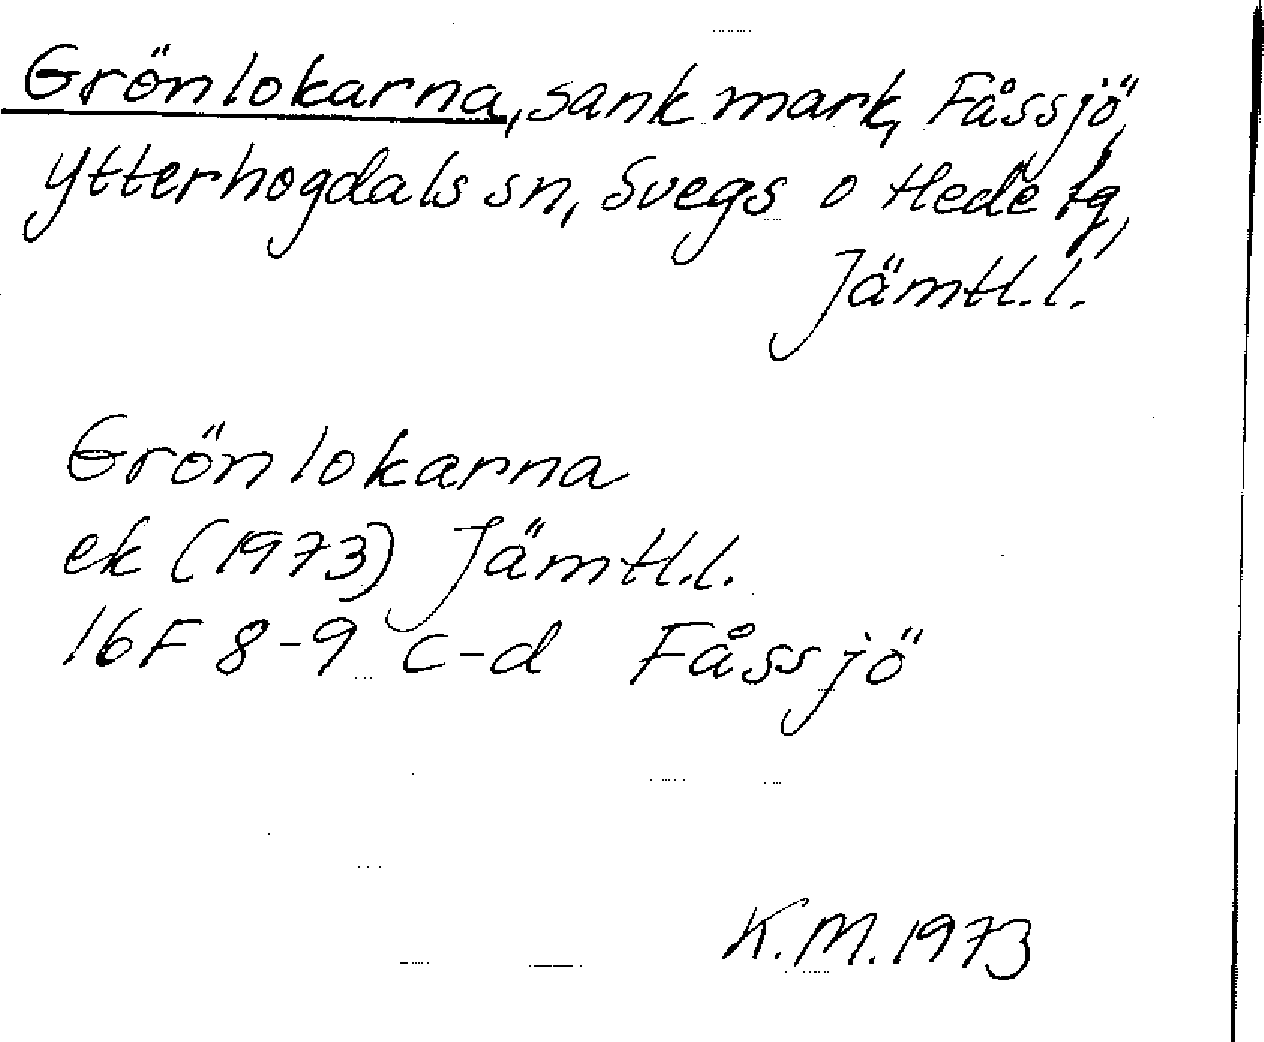 Grönlokarna, sank mark, Fåssjö,
Ytterhogdals sn, Svegs o Hede tg,
Jämtl. l.
Grönlokarna
ek (1973) Jämtl. l.
16F 8-9 c-d Fåssjö
K. M. 1973